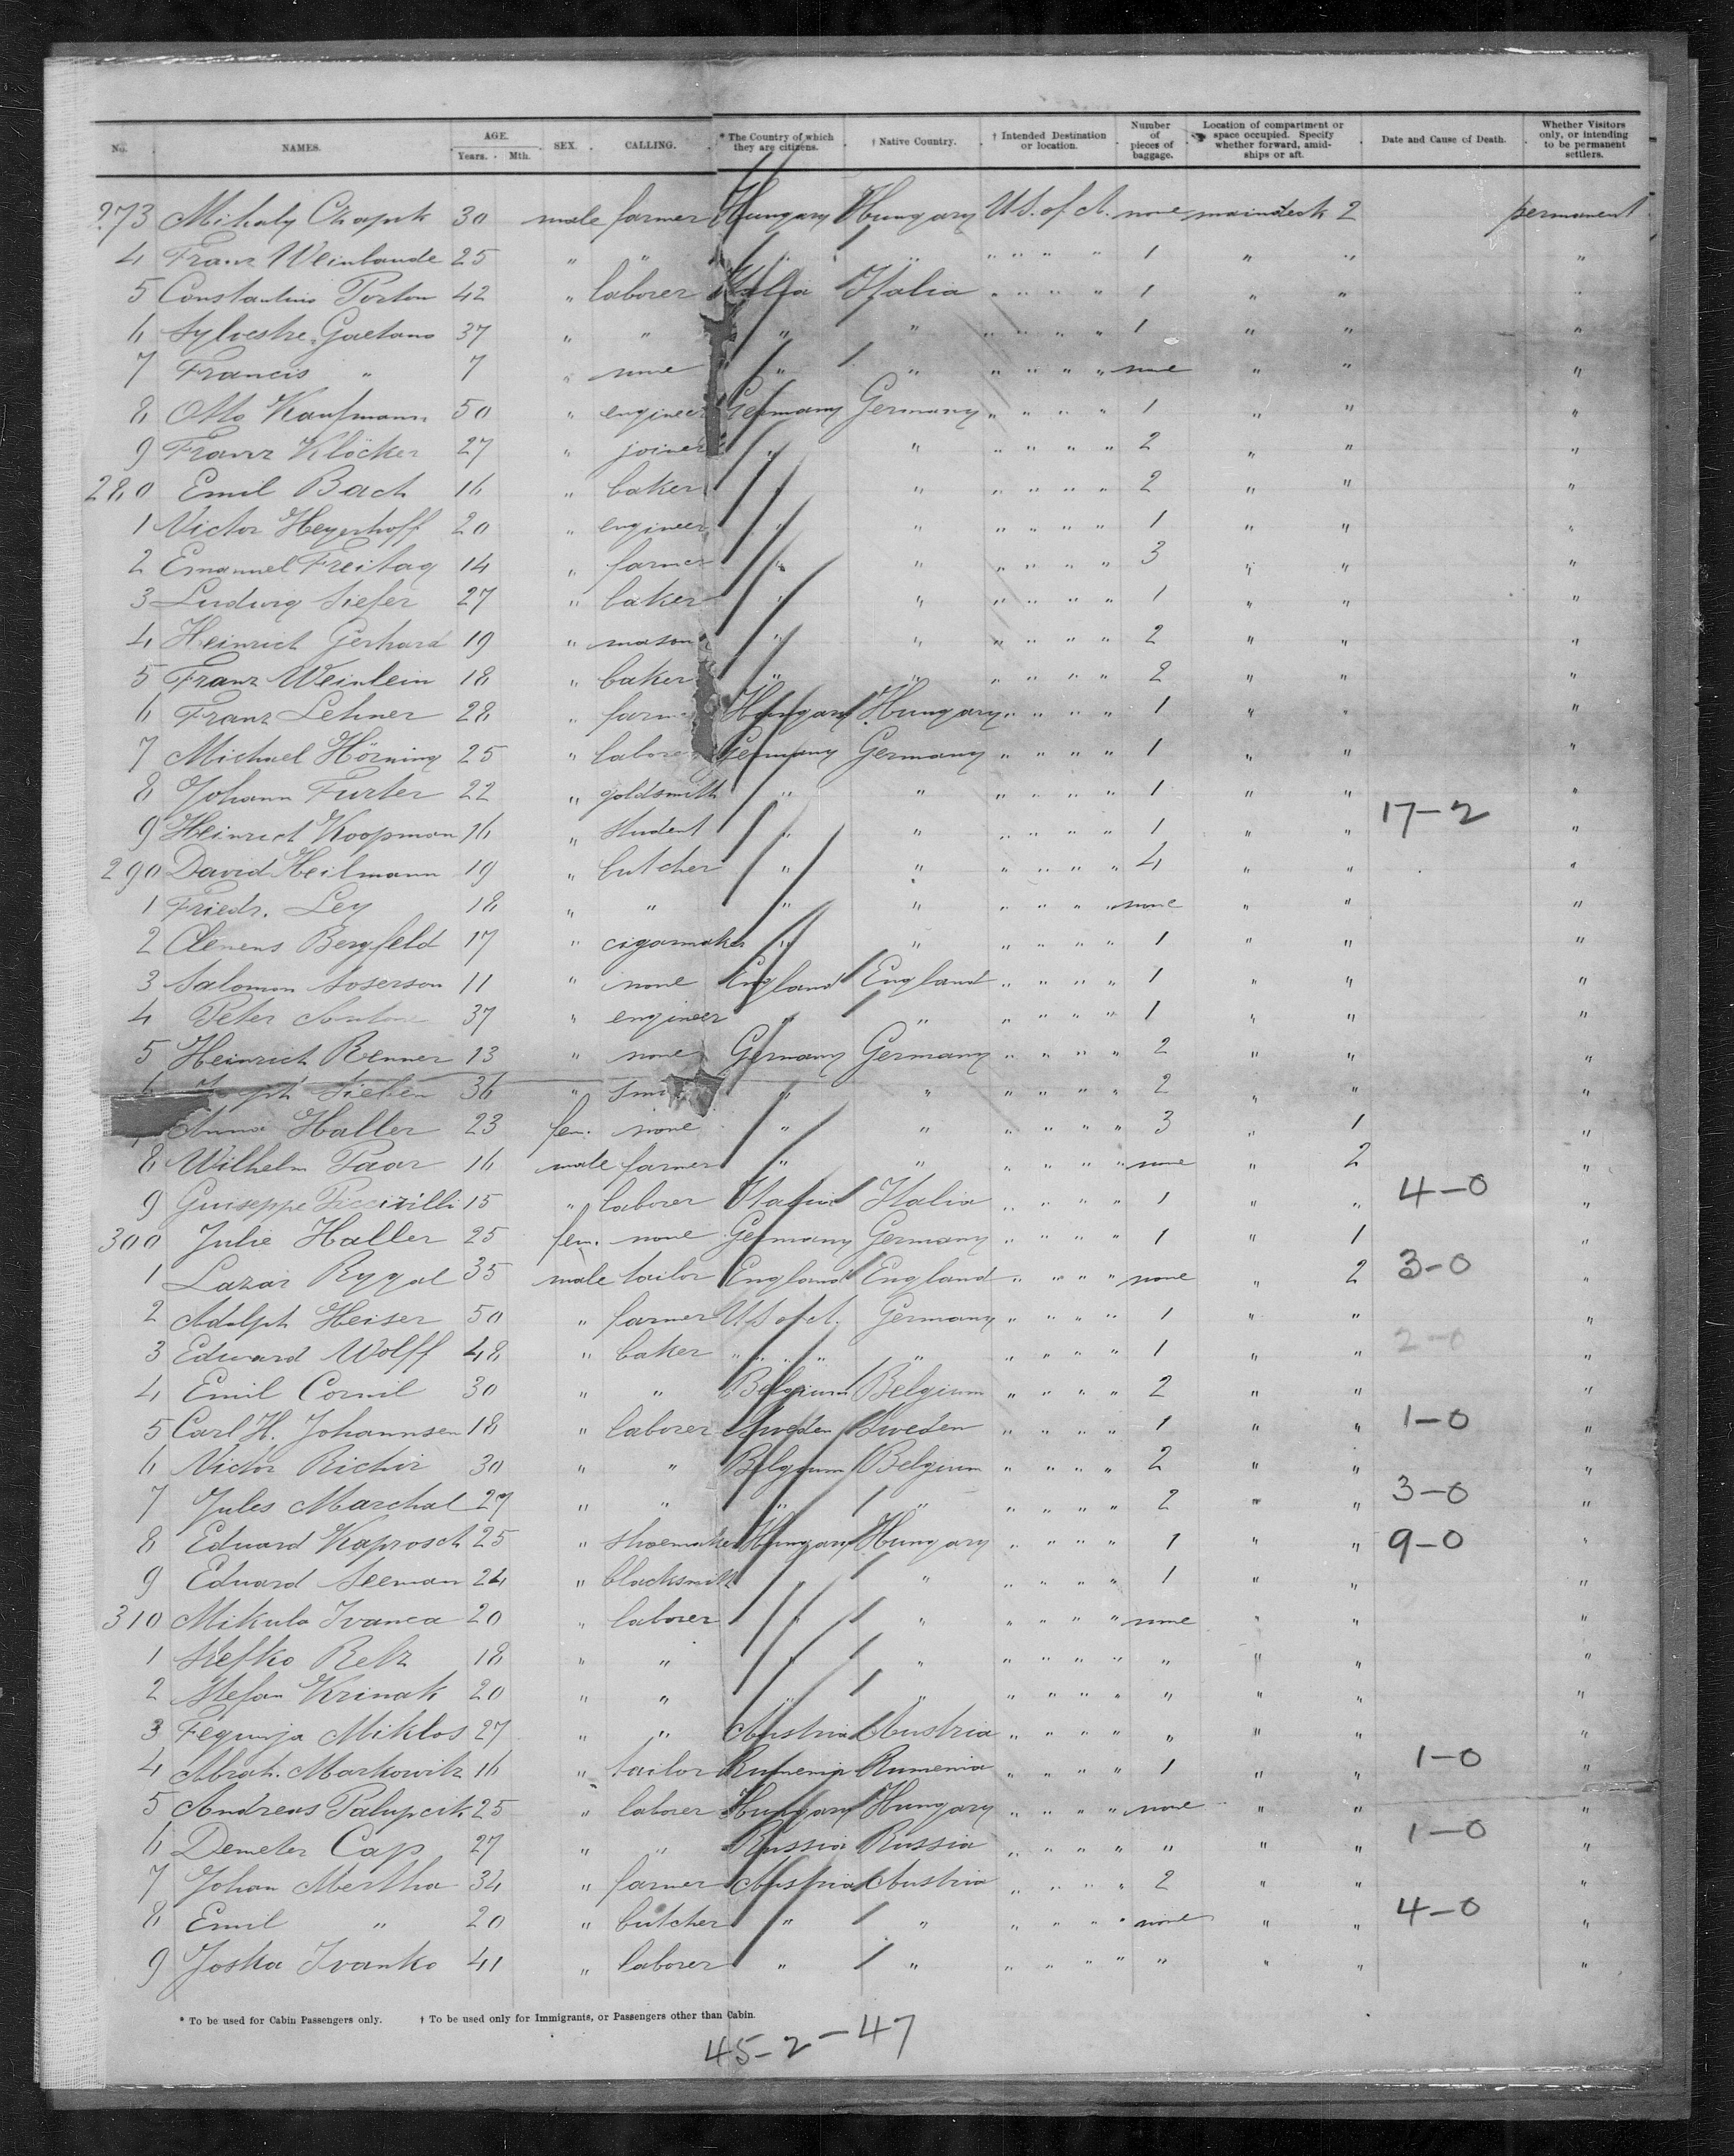 No. NAMES. AGE. Years. Mth. SEX. CALLING. * The Country of which they are citizens. † Native Country. † Intended Destination or location. Number of pieces of baggage. Location of compartment or space occupied. Specify whether forward, amidships or aft. Date and Cause of Death. Whether Visitors only, or intending to be permanent settlers.
273 Mihaly 30 male farmer Hungary Hungary U.S. of A. none maindeck 2 permanent
4 Franz 25 " " " " " " " " 1 " " "
5 Constantino Porton 42 " laborer Italia Italia " " " " 1 " " "
6 Sylvestre Gaetano 37 " " " " " " " " 1 " " "
7 Francis " 7 " none " " " " " " none " " "
8 Otto Kaufmann 50 " engineer Germany Germany " " " " 1 " " "
9 Franz Klöcker 27 " joiner " " " " " " 2 " " "
280 Emil Bach 16 " baker " " " " " " 2 " " "
1 Victor Heyerhoff 20 " engineer " " " " " " 1 " " "
2 Emanuel Freitag 14 " farmer " " " " " " 3 " " "
3 Ludwig Siefer 27 " baker " " " " " " 1 " " "
4 Heinrich Gerhard 19 " mason " " " " " " 2 " " "
5 Franz Weinlein 18 " baker " " " " " " 2 " " "
6 Franz Lehner 28 " farm Hungary Hungary " " " " 1 " " "
7 Michael Hörning 25 " labore Germany Germany " " " " 1 " " "
8 Johann Furter 22 " goldsmith " " " " " " 1 " " "
9 Heinrich Koopman 16 " student " " " " " " 1 " " 17-2 "
290 David Heilmann 19 " butcher " " " " " " 4 " " "
1 Friedr. Ley 18 " " " " " " " " none " " "
2 Clemens Bergfeld 17 " cigarmaker " " " " " " 1 " " "
3 Salomon Soserson 11 " none England England " " " " 1 " " "
4 Peter 37 " engineer " " " " " " 1 " " "
5 Heinrich Renner 13 " none Germany Germany " " " " 2 " " "
6 Sieben 36 " smi " " " " " " 2 " " "
Anna Haller 23 fem. none " " " " " " 3 " 1 "
8 Wilhelm Paar 16 male farmer " " " " " " none " 2 "
9 Guiseppe 15 " laborer Italia Italia " " " " 1 " " 4-0 "
300 Julie Haller 25 fem. none Germany Germany " " " " 1 " 1 "
1 Lazar Rygal 35 male tailor England England " " " " none " 2 3-0 "
2 Adolph Heiser 50 " farmer U.S. of A. Germany " " " " 1 " " "
3 Eduard Wolff 48 " baker " " " " " " " " 1 " " 2-0 "
4 Emil Cornil 30 " " Belgium Belgium " " " " 2 " " "
5 Carl H. Johannsen 18 " laborer Sweden Sweden " " " " 1 " " 1-0 "
6 Victor Richir 30 " " Belgium Belgium " " " " 2 " " "
7 Jules Marchal 27 " " " " " " " " 2 " " 3-0 "
8 Eduard Kaprosch 25 " shoemaker Hungary Hungary " " " " 1 " " 9-0 "
9 Eduard Seeman 24 " blacksmith " " " " " " 1 " " "
310 Mikula Ivanca 20 " laborer " " " " " " none " " "
1 Stefko Relz 18 " " " " " " " " " " " "
2 Stefan Krinak 20 " " " " " " " " " " " "
3 Fegunja Miklos 27 " " Austria Austria " " " " " " " "
4 Abrah. Markowitz 16 " tailor Rumenia Rumenia " " " " 1 " " 1-0 "
5 Andreas Palupcik 25 " laborer Hungary Hungary " " " " none " " "
6 Demeter Cap 27 " " Russia Russia " " " " " " " 1-0 "
7 Johan Mertha 34 " farmer Austria Austria " " " " 2 " " "
8 Emil " 20 " butcher " " " " " " none " " 4-0 "
9 Joska Ivanko 41 " laborer " " " " " " " " " "
* To be used for Cabin Passengers only. † To be used only for Immigrants, or Passengers other than Cabin.
45-2-47